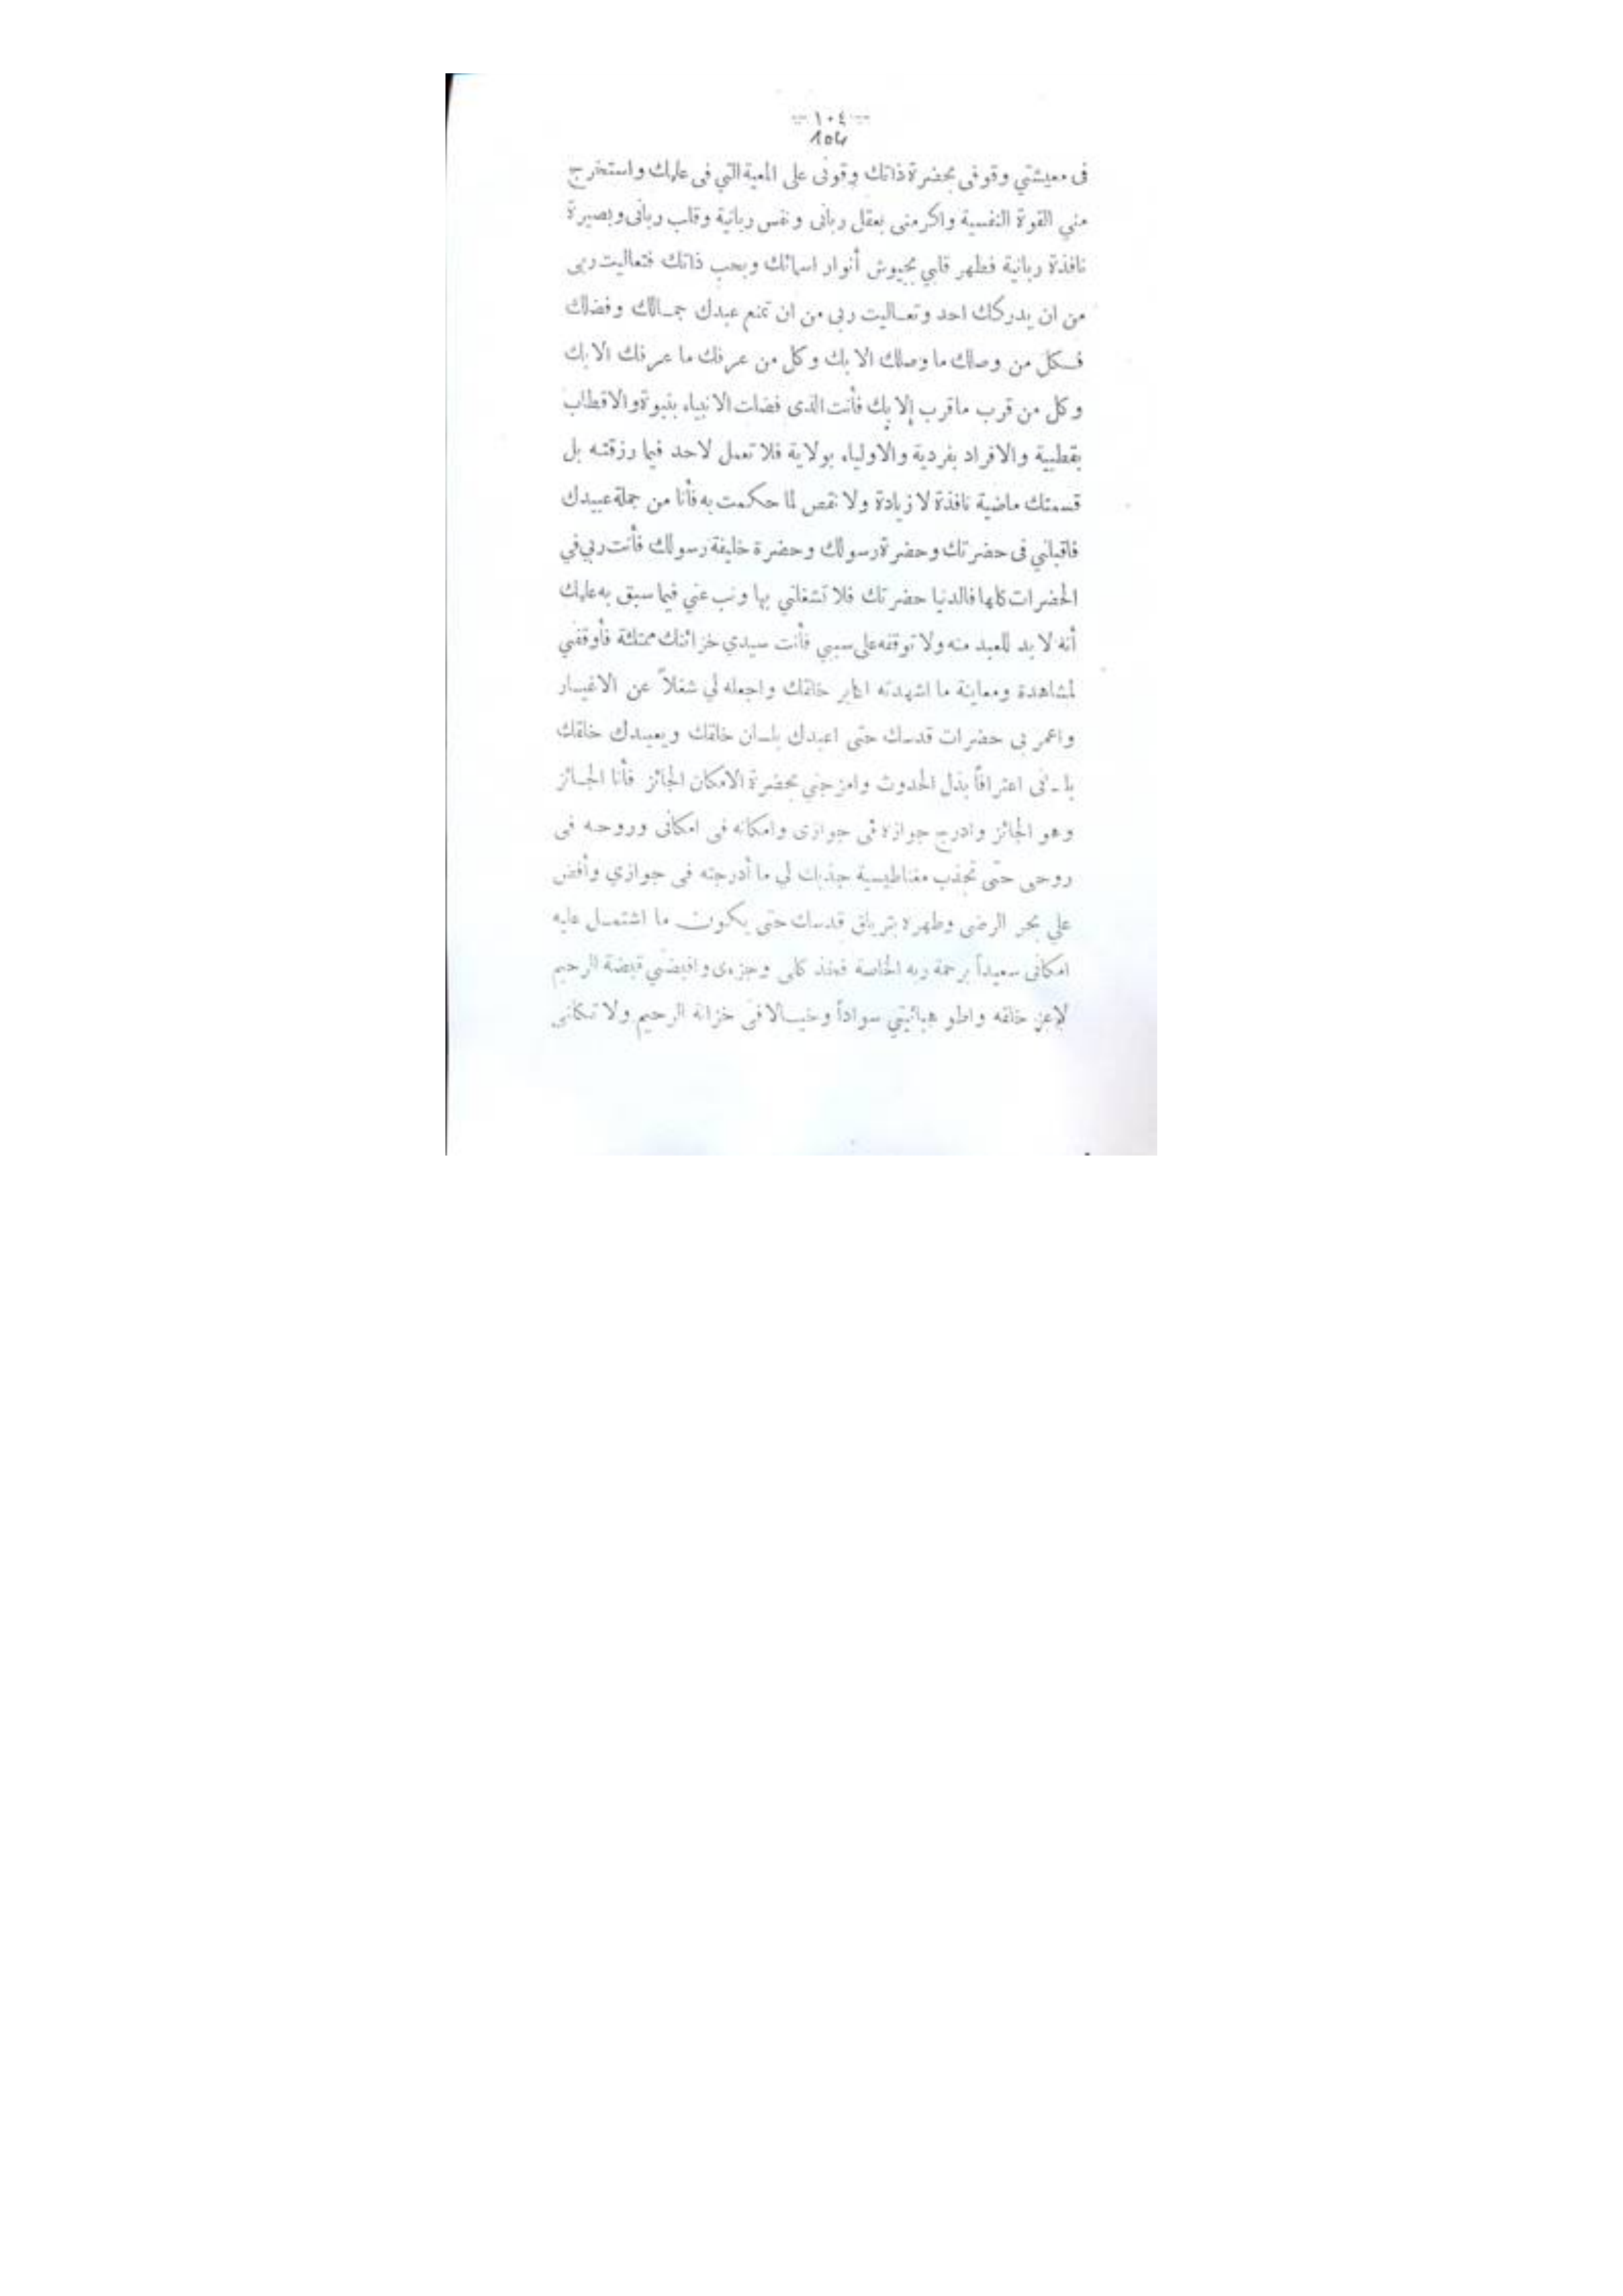 — ١٠٤ —
104
فى معيشتي وقوفى بحضرة ذاتك وقونى على المعية التي فى علمك واستخرج
مني القوة النفسية واكرمنى بعقل ربانى ونفس ربانية وقلب ربانى وبصيرة
نافذة ربانية فطهر قلبي بجيوش أنوار اسمائك وبحب ذاتك فتعاليت ربى
من ان يدركك احد وتعـاليت ربى من ان تمنع عبدك جمـالك وفضلك
فـكل من وصلك ما وصلك الا بك وكل من عرفك ما عرفك الا بك
وكل من قرب ماقرب إلا بك فأنت الذى فضلت الانبياء بنبوة والاقطاب
بقطبية والافراد بفردية والاولياء بولاية فلا تعمل لاحد فيما رزقتـه بل
قسمتك ماضية نافذة لا زيادة ولا نقص لما حكمت به فأنا من جملة عبيدك
فاقبلني فى حضرتك وحضرة رسولك وحضرة خليفة رسولك فأنت ربي في
الحضرات كلها فالدنيا حضرتك فلا تشغلني بها ونب عني فيما سبق به علمك
أنه لا بد للعبد منه ولا توقفه على سببي فأنت سيدي خزائنك ممتلئة فأوقفني
لمشاهدة ومعاينة ما اشهدته اكابر خلقك واجعله لي شغلاً عن الاغيـار
واعمر بى حضرات قدسك حتى اعبدك بلسان خلقك ويعبـدك خلقك
بلسانى اعترافاً بذل الحدوث وامزجني بحضرة الامكان الجائز فأنا الجـائز
وهو الجائز وادرج جوازه فى جوازى وامكانه فى امكانى وروحـه فى
روحى حتى تجذب مغناطيسية جذبك لي ما أدرجته فى جوازي وأفض
علي بحر الرضى وطهره بترياق قدسك حتى يكون ما اشتمـل عليه
امكانى سعيداً برحمة ربه الخاصة فخذ كلى وجزءى واقبضني قبضة الرحيم
لاعز خلقه واطو هبائيتي سواداً وخيـالا فى خزانة الرحيم ولا تـكلنى